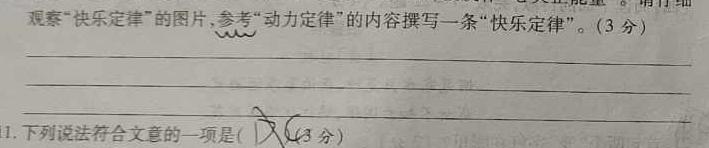 观察“快乐定律”的图片,参考“动力定律”的内容撰写一条“快乐定律”。(3分)
11.下列说法符合文意的一项是( (3分)